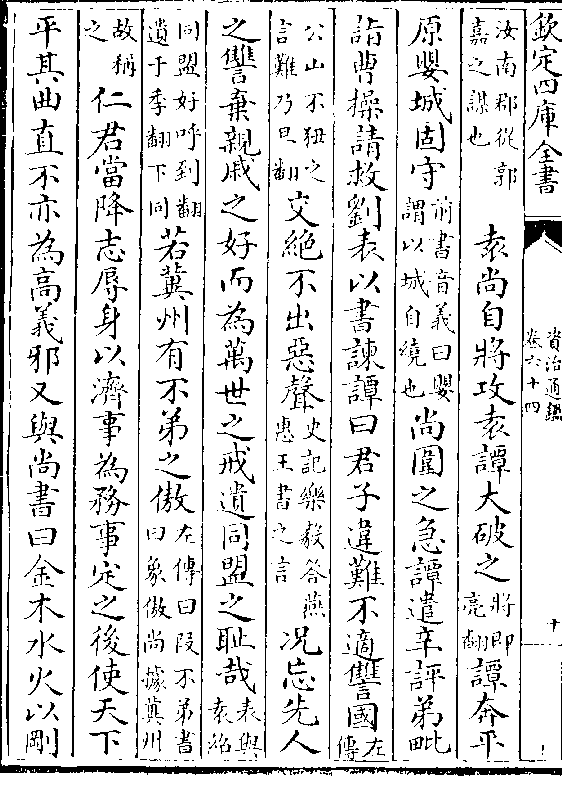 欽定四庫全書 資治通鑑 卷六十四 十
汝南郡從郭嘉之謀也 袁尚自將攻袁譚大破之將即亮翻譚奔平
原嬰城固守前書音義曰嬰謂以城自繞也尚圍之急譚遣辛評弟毗
詣曹操請救劉表以書諫譚曰君子違難不適讐國左傳
公山不狃之言難乃旦翻交絶不出惡聲史記樂毅答燕惠王書之言况忘先人
之讐棄親戚之好而為萬世之戒遺同盟之耻哉表與袁紹
同盟好呼到翻遺于季翻下同若冀州有不弟之傲左傳曰段不弟書曰象傲尚據冀州
故稱之仁君當降志辱身以濟事為務事定之後使天下
平其曲直不亦為高義邪又與尚書曰金木水火以剛